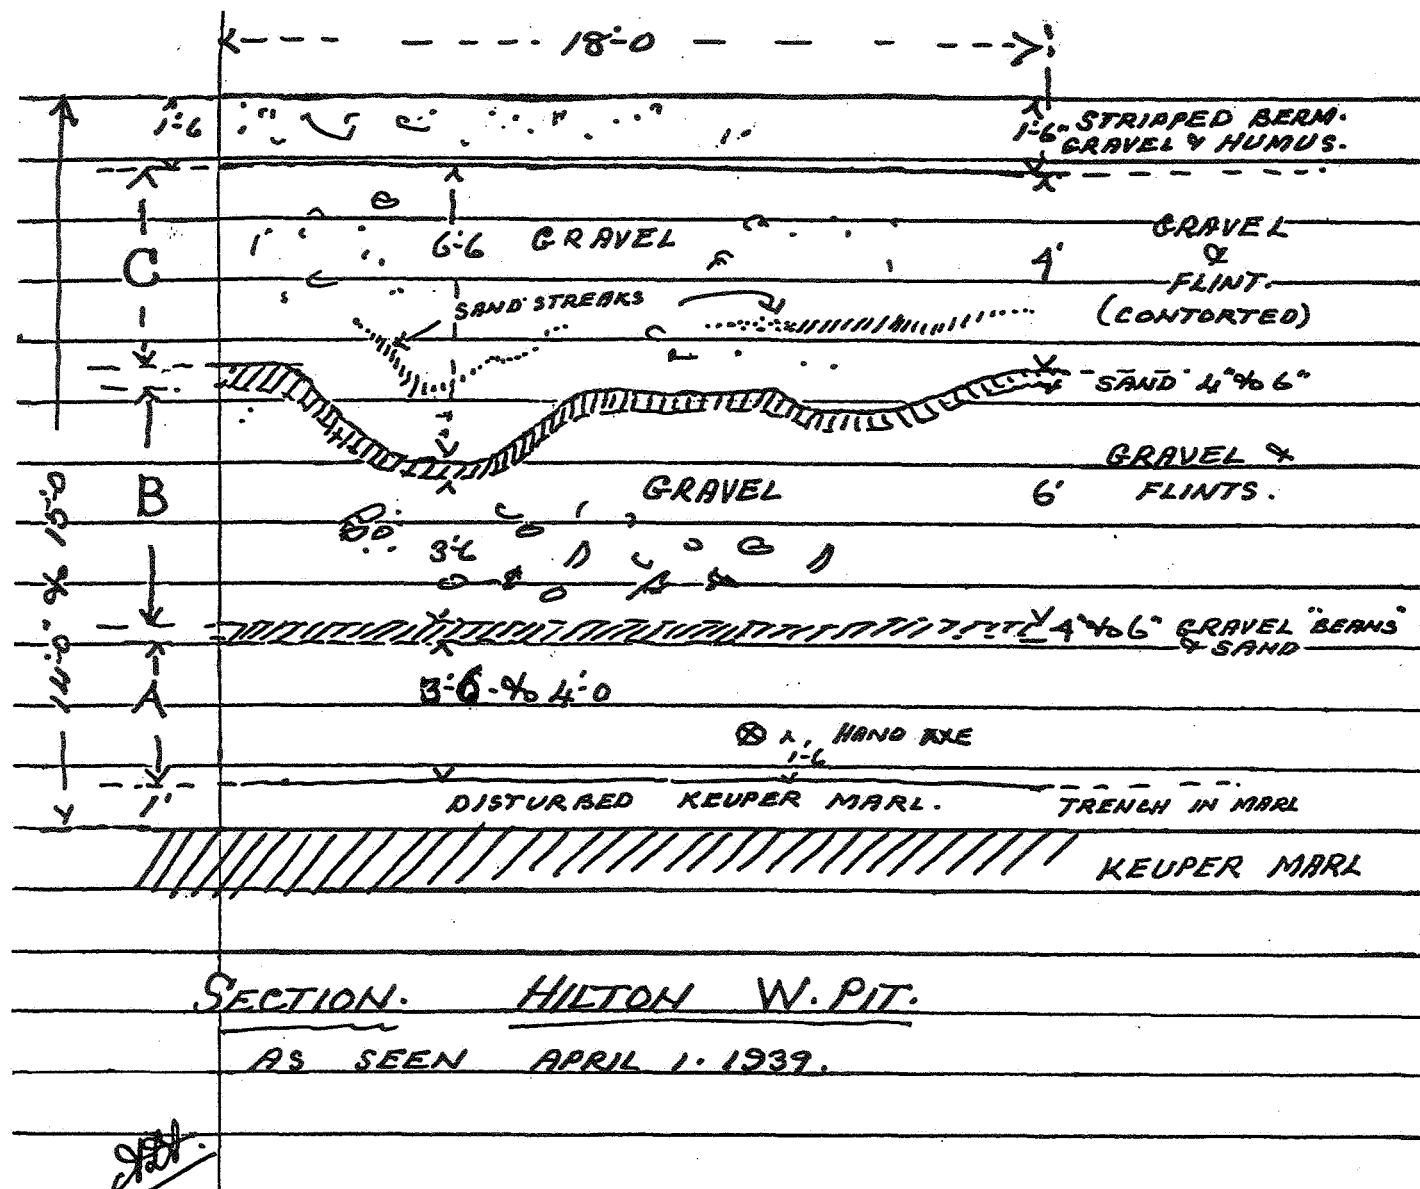 18'-0
1'-6
1'-6" STRIPPED BERM.
GRAVEL & HUMUS.
C
1'
6'-6
GRAVEL
4'
GRAVEL
&
FLINT.
(CONTORTED)
SAND STREAKS
SAND 4" to 6"
B
GRAVEL
6'
GRAVEL &
FLINTS.
3'6
14'-0" to 15'-0
4" to 6" GRAVEL "BEANS"
& SAND
A
3'-6 - to 4'-0
HAND AXE
1'-6
1'
DISTURBED KEUPER MARL.
TRENCH IN MARL
KEUPER MARL
SECTION. HILTON W. PIT.
AS SEEN APRIL 1. 1939.